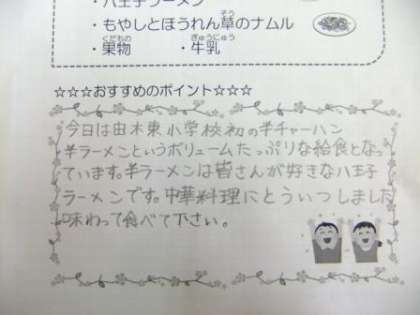 ・八王子ラーメン
・もやしとほうれん草のナムル
・果物 ・牛乳
☆☆☆おすすめのポイント☆☆☆
今日は由木東小学校初の半チャーハン
半ラーメンというボリュームたっぷりな給食となっ
ています。半ラーメンは皆さんが好きな八王子
ラーメンです。中華料理にとういつしました
味わって食べて下さい。